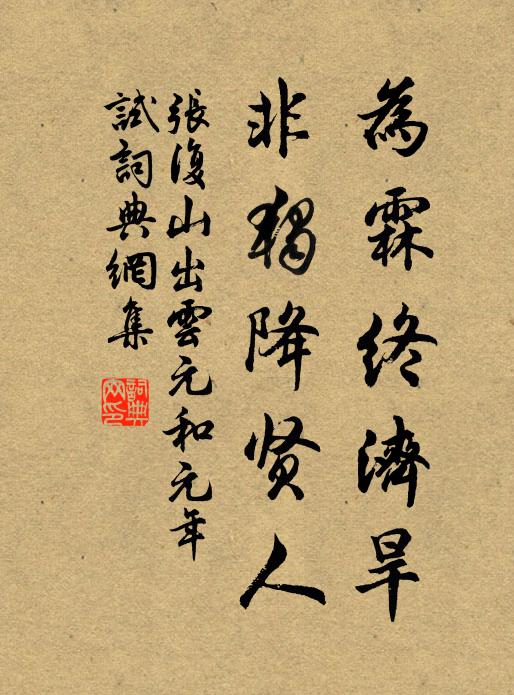 為霖終濟旱
非獨降贤人
張復山出雲元和元年
試詞典網集
詞典
网印